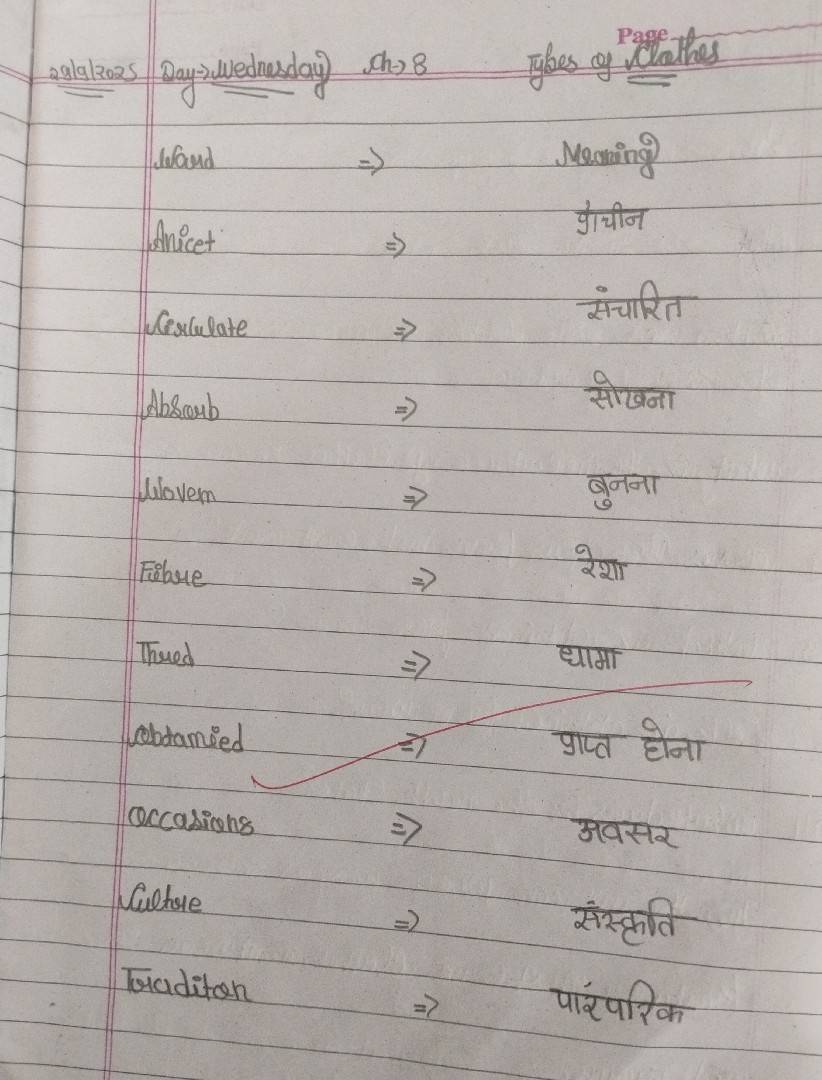 Page
29/9/2025 Day→Wednesday Ch→8 Types of Clothes
Word ⇒ Meaning
Anicet ⇒ प्राचीन
Cerculate ⇒ संचारित
Absorb ⇒ सोखना
Wovem ⇒ बुनना
Fibre ⇒ रेशा
Thred ⇒ धागा
Obtamied ⇒ प्राप्त होना
Occasions ⇒ अवसर
Culture ⇒ संस्कृति
Traditon ⇒ पारंपरिक